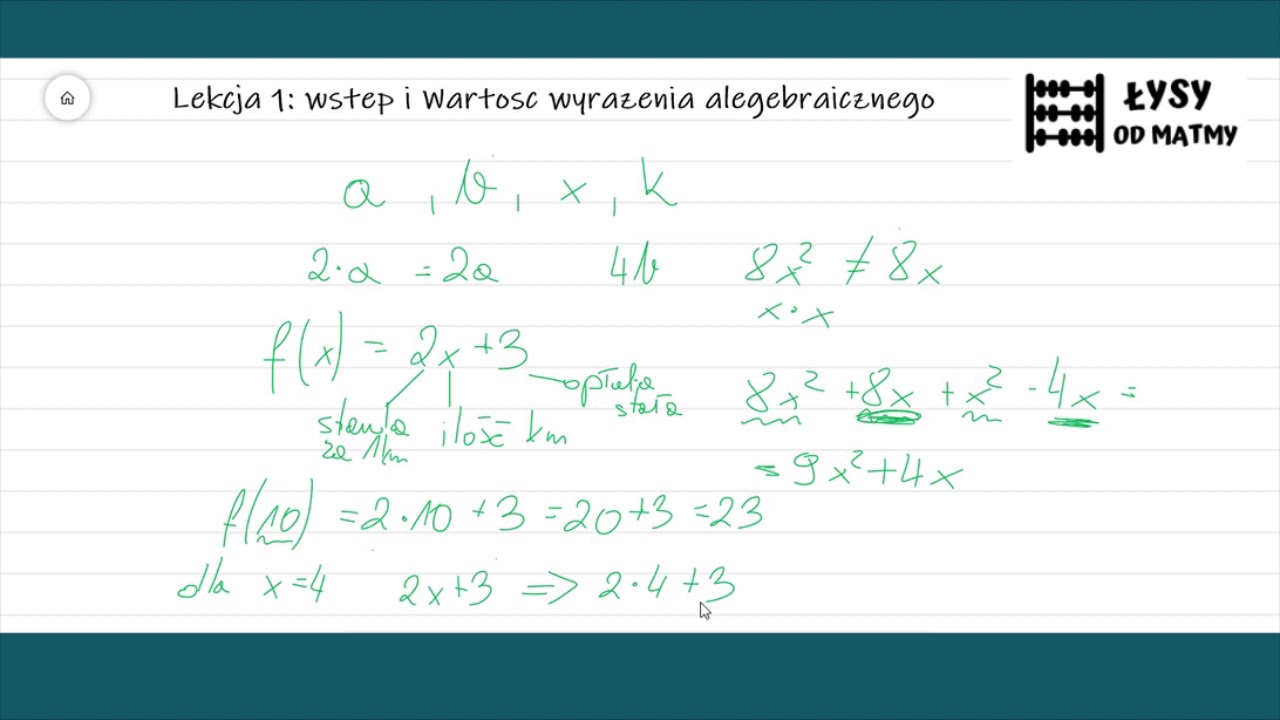 Lekcja 1: wstep i Wartosc wyrazenia alegebraicznego
ŁYSY
OD MATMY
a , b , x , k
2·a = 2a 4b 8x² ≠ 8x
x·x
f(x) = 2x+3
opłata
stała
stawka
za 1km
ilość km
8x² +8x + x² - 4x =
= 9x²+4x
f(10) = 2·10 + 3 = 20+3 = 23
dla x=4 2x+3 => 2·4+3